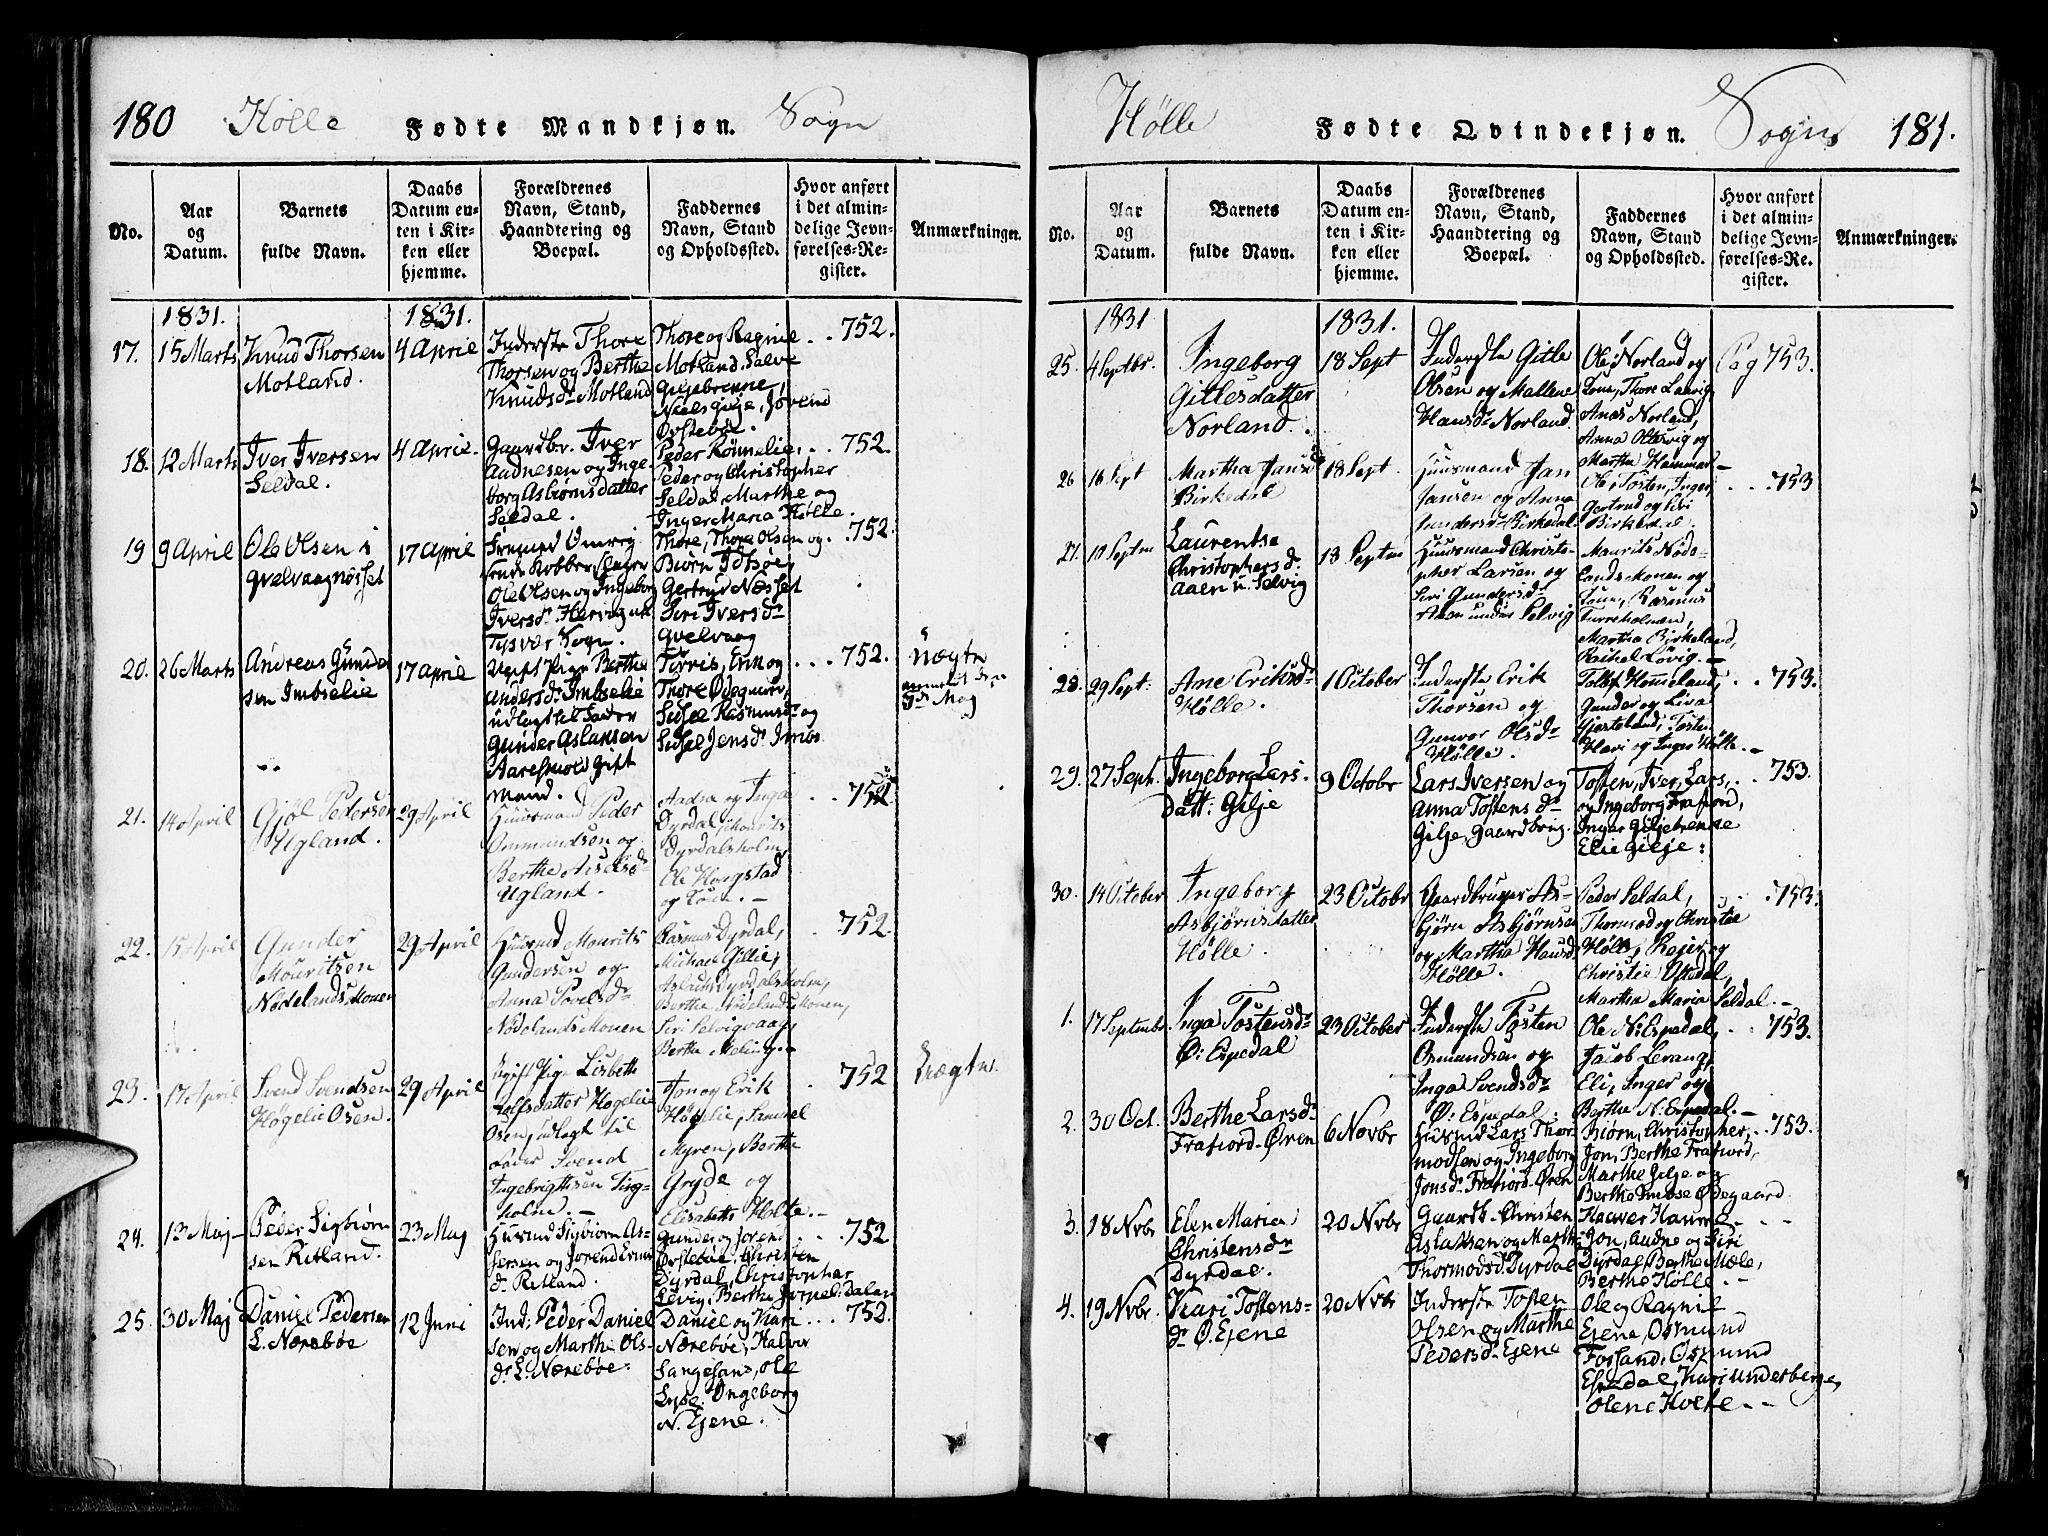 180 Hølle Fødte Mandkjøn. Sogn
No.
Aar
og
Datum.
Barnets
fulde Navn.
Daabs
Datum en-
ten i Kir-
ken eller
hjemme.
Forældrenes
Navn, Stand,
Haandtering og
Boepæl.
Faddernes
Navn, Stand
og Opholdssted.
Hvor anført
i det almin-
delige Jevn-
førelses-Re-
gister.
Anmærkninger.
1831.
1831.
17.
15 Marts
Knud Thorsen
Motland.
4 April
Inderste Thore
Thorsen og Berthe
Knudsdr Motland
Thore og Ragnil
Motland, Salve
Giljebrenne,
Niels Gilje, Jørend
Ovstebøe.
752.
18.
12 Marts
Iver Iversen
Seldal.
4 April.
Gaardbr. Iver
Audnesen og Inge-
borg Asbiørnsdatter
Seldal.
Peder Rønnelie,
Peder og Christopher
Seldal, Marthe og
Inger Maria Hølle.
752.
19
9 April
Ole Olsen i
Qvelvaagnøsset
17 April
Ole Olsen og Ingeborg
Iversdr
Tysvær Sogn.
Thore, Thore Olsen og
Biørn Idsøe,
Gertrud Næsset
Siri Iversdr
Qvelvaag
752.
20.
26 Marts
Andreas Gunder
sen Imbselie
17 April
Ugift Pige Berthe
Andersdr Imbselie
udlagt til Fader
Gunder Aslaksen
gift
Mand.
Torris, Enn og
Thore Ødegaard,
Sidsel Rasmusdr og
Sidsel Jensdr Imbs
752.
Uægte
21.
14 April
Gjøl Pedersen
Ugland.
29 April
Huusmand Peder
Ommundsen og
Berthe
Ugland.
Aadne og Inga
Dyrdal, Mourits
Dyrdalsholm,
Ole Hougstad
og Kone.
752
22.
15 April
Gunder
Mouritsen
Nødelandsmonen
29 April
Huusmd Mourits
Gundersen og
Anna Povelsdr
Nødelandsmonen
Rasmus Dyrdal,
Michael Gillie,
Aslach Dyrdalsholm,
Berthe Nødelandsmonen,
Siri Selvigvaag,
Berthe Meling.
752.
23.
17 April
Svend Svendsen
Høgelie Osen.
29 April
Ugift Pige Lisbeth
Rolfsdatter Høgelie
Osen, udlagt til
Fader Svend
Ingebrigtsen Ting-
holm.
Jon og Erik
Høgelie, Samuel
Myren, Berthe
Gryde og
Elisabeth Holte.
752
Uægte.
24.
13 Maj
Peder Sigbiørn
sen Ritland.
23 Maj
Huusmd Sigbiørn As-
sersen og Jørend
dr Ritland.
Gunder og Jørend
Øvstebøe, Christen
Dyrdal, Christopher
Løvig, Berthe Dalen
752
25.
30 Maj
Daniel Pedersen
L. Nærebøe
12 Juni
Ind: Peder Daniel
sen og Marthe Ols-
dr L: Nærebøe.
Daniel og Kari
Nærebøe, Halvor
Sangesand, Ole
Lyse, Ingeborg
N. Ejene.
752.
Hølle Fødte Qvindekjøn. Sogn 181.
No.
Aar
og
Datum.
Barnets
fulde Navn.
Daabs
Datum en-
ten i Kir-
ken eller
hjemme.
Forældrenes
Navn, Stand,
Haandtering og
Boepæl.
Faddernes
Navn, Stand
og Opholdssted.
Hvor anført
i det almin-
delige Jevn-
førelses-Re-
gister.
Anmærkninger.
1831
1831.
25.
4 Septbr.
Ingeborg
Gitlesdatter
Norland.
18 Sept
Inderste Gitle
Olsen og Mallene
Hansdr Norland
Ole Norland og
Kone, Thore Lauvig
Anas Norland,
Anna Oltesvig og
Martha Hammer
Pag 753.
26
16 Sept
Martha Jansdr
Birkedal
18 Sept
Huusmand Jan
Jansen og Anna
Gundersdr Birkedal
Ole, Tosten, Inger,
Gertrud og Siri
Birkedal.
753
27.
10 Septm
Laurentse
Christophersdr
Aaen u. Selvig
18 Septm
Huusmand Christo-
pher Larsen og
Siri Gundersdr
Aaen under Selvig
Maurits Nødo-
landsmonen og
Kone, Rasmus
Turreholmen,
Martha Birkeland,
Rachel Løvig.
28.
29 Sept:
Ane Eriksdr
Hølle.
1 October
Inderste Erik
Thorsen og
Gunvor Olsdr
Hølle.
Tollef Hommeland,
Gunder og Liva
Gjesteland, Tosten
Høvi og Inger Hølle.
753.
29.
27 Sept.
Ingeborg Lars-
Datt: Gilje
9 Octobr
Lars Iversen og
Anna Tostens dr
Gilje, Gaardbrug.
Tosten, Iver, Lars,
og Ingeborg Frafiord,
Inger Giljebrenne
Elie Gilje:
753.
30.
14 October
Ingeborg
Asbjørnsdatter
Hølle
23 Octobr
Gaardbruger As-
bjørn Asbjørnsen
og Martha Hansd
Hølle.
Peder Seldal,
Thormod og Christie
Hølle, Reier og
Christie Ottedal,
Martha Maria Seldal.
753.
1.
17 September
Inga Tostensdr
Ø: Espedal
23 October
Inderste Tosten
Osmundsen og
Inga Svendsdr
Ø: Espedal:
Ole N: Espedal,
Jacob Levang,
Eli, Inger og
Berthe N: Espedal.
753.
2.
30 Oct.
Berthe Larsdr
Frafiord-Øren
6 Novbr
Huusmd Lars Thor-
modsen og Ingeborg
Jonsdr Frafiord-Øren
Biørn, Christopher,
Jon, Berthe Frafiord,
Marthe Gilje og
Berthe Imbse Ødegaard
753.
3.
18 Nvbr
Elen Maria
Christensdr
Dyrdal.
20 Nvbr
Gaardb. Christen
Aslaksen og Marthe
Thormodsd: Dyrdal
Haaver Haume
Jon, Audne og Siri
Dyrdal, Berthe Mæle,
Berthe Hølle.
4.
19 Nvbr.
Kari Tostens-
dr Ø. Ejene
20 Nvbr
Inderste Tosten
Olsen og Marthe
Pedersdr Ejene
Ole og Ragnil
Ejene, Osmund
Forsand, Osmund
Espedal, Kari Underberge,
Olene Holte